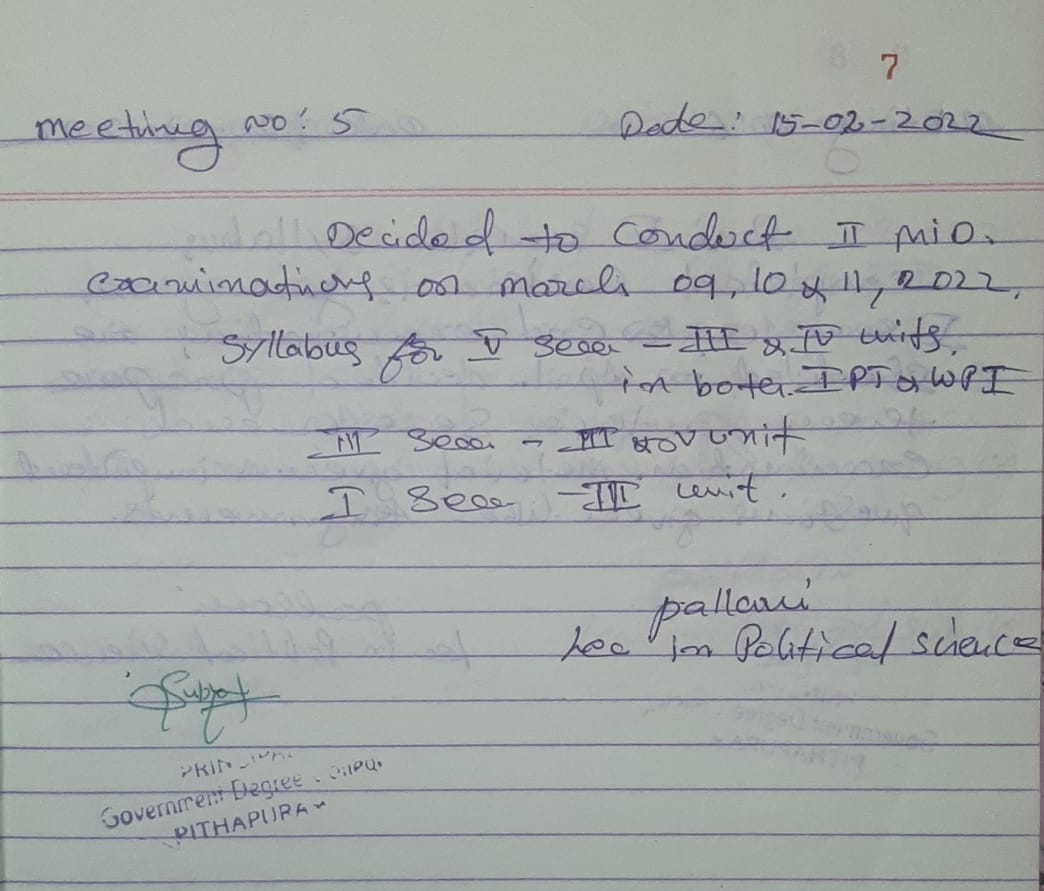 7
meeting no: 5 Date: 15-02-2022
Decided to Conduct II MID.
examinations on march 09, 10 & 11, 2022.
Syllabus for V Sem - III & IV units.
in both IPT & WPI
III Sem - III unit
I Sem - III unit.
pallavi
Lec in Political science
Government Degree
PITHAPURAM